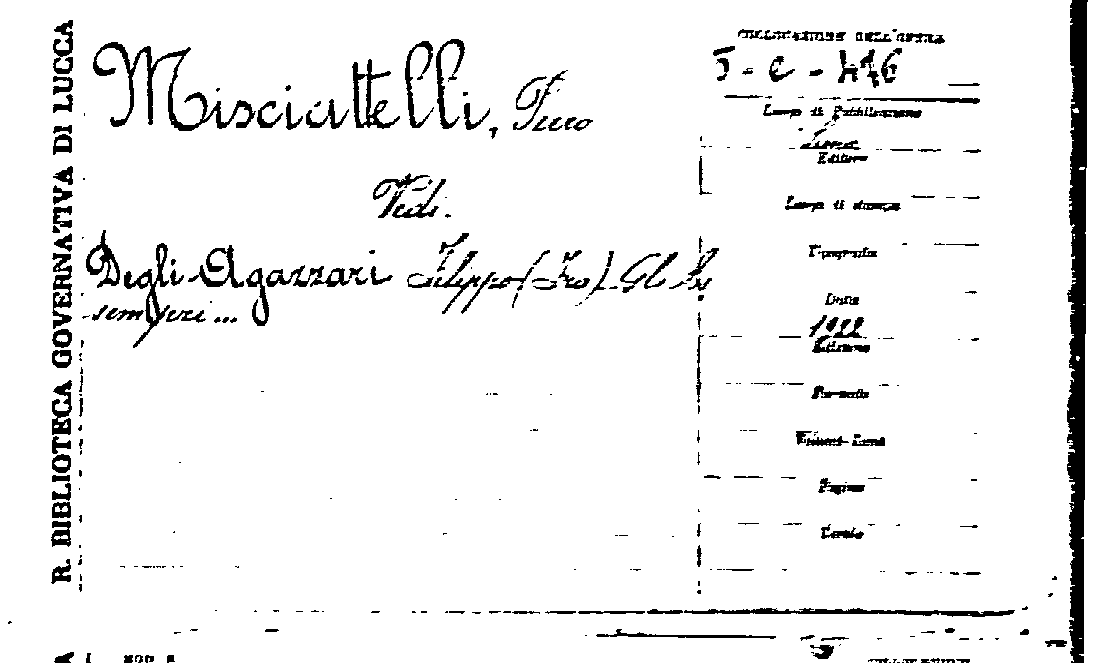 R. BIBLIOTECA GOVERNATIVA DI LUCCA
Misciattelli, Piero
Vedi.
Degli Agazzari Filippo (Fra) Gli As
sempri...
COLLOCAZIONE DELL'OPERA
5 - C - 476
Luogo di Pubblicazione
Siena
Editore
Luogo di stampa
Tipografia
Data
1922
Edizione
Formato
Volumi-Tomi
Pagine
Tavole